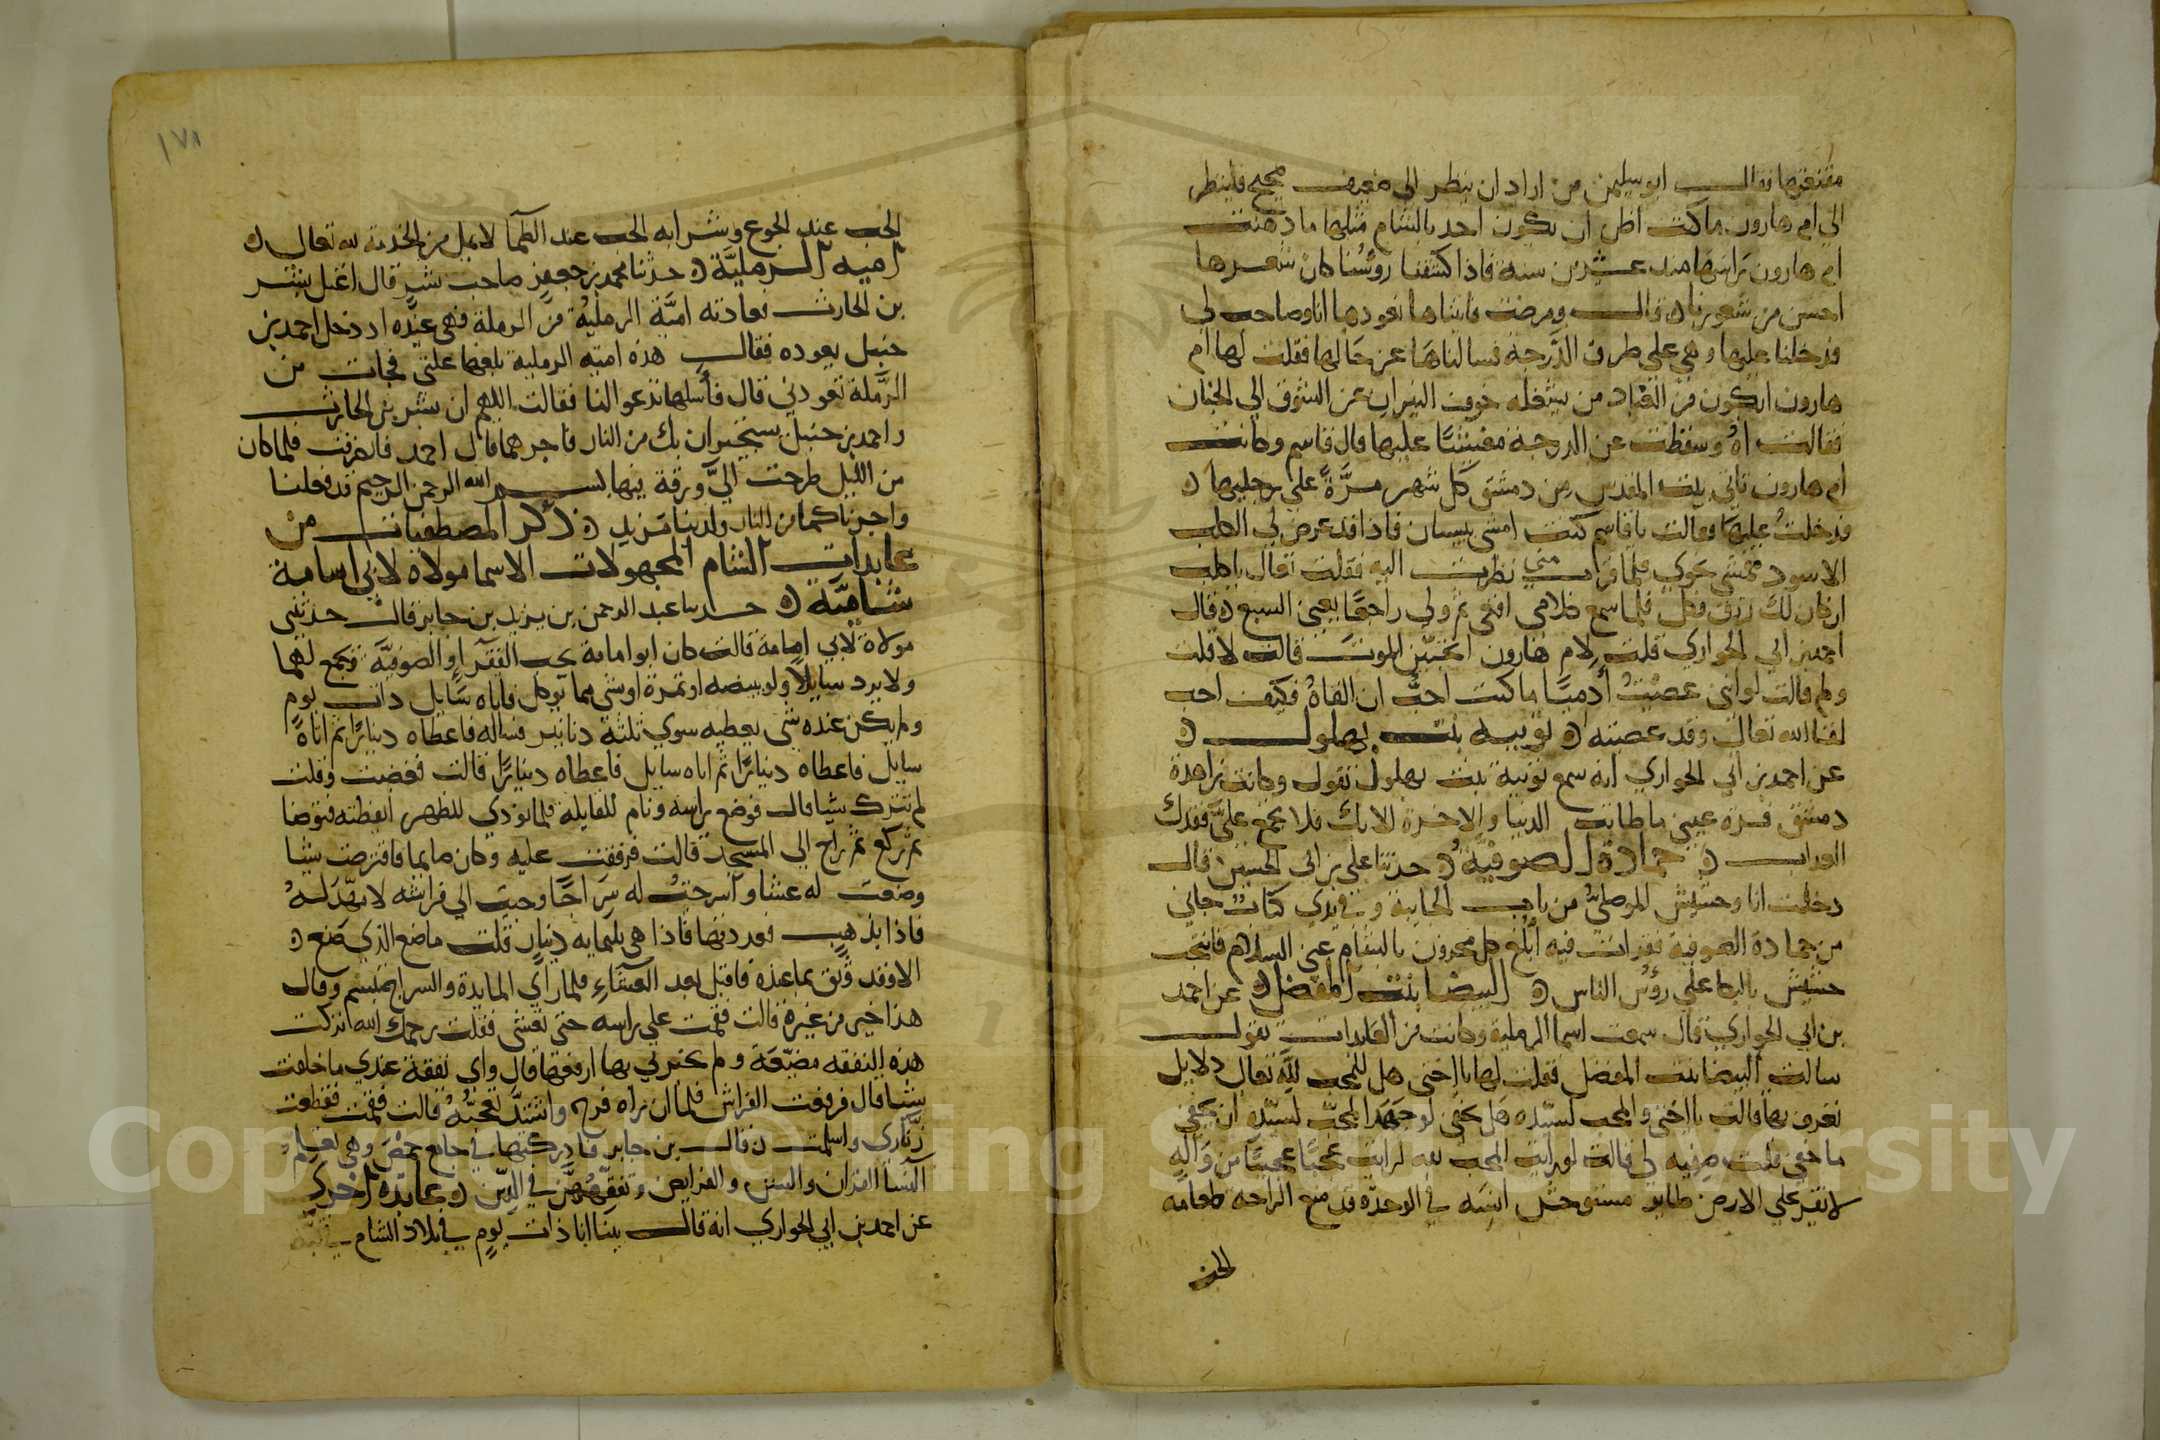 مقنعتها فقال ابو سليمن من اراد ان ينظر الي ضعيف صحيح فلينظر
الي ام هارون ما كنت اظن ان يكون احد بالشام مثلها ما دهنت
ام هارون راسها منذ عشرين سنة فاذا كشفنا روسنا كان شعرها
احسن من شعورنا قال ومرضت فاتيناها نعودها انا وصاحب لي
فدخلنا عليها وهي علي طرف الدرجة فسالناها عن حالها فقلت لها ام
هارون ايكون من العباد من يشغله خوف النيران عن الشوق الي الجنان
فقالت اه وسقطت عن الدرجة مغشيا عليها قال قاسم وكانت
ام هارون تاتي بيت المقدس من دمشق كل شهر مرة علي رجليها
فدخلت عليها فقالت يا قاسم كنت امشي ببيسان فاذا قد عرض لي الكلب
الاسود فمشي نحوي فلما قرب مني نظرت اليه فقلت تعال يا كلب
ان كان لك رزق فكل فلما سمع كلامي اقعي ثم ولي راجعا يعني السبع قال
احمد بن ابي الحواري قلت لام هارون اتحبين الموت قالت لا قلت
ولم قالت لو اني عصيت ادميا ما كنت احب ان القاه فكيف احب
لقا الله تعالي وقد عصيته ثويبه بنت بهلول
عن احمد بن ابي الحواري انه سمع ثويبة بنت بهلول تقول وكانت زاهدة
دمشق قرة عيني ما طابت الدنيا والاخرة الا بك فلا تجمع علي فقدك
العذاب حمادة الصوفية حدثنا علي بن ابي الحسين قال
دخلت انا وحشيش الموصلي من باب الجابية وفي يدي كتاب جاني
من حمادة الصوفية فقرات فيه ابلغ كل محزون بالشام عني السلام فانتحب
حشيش بالبكا علي رؤس الناس البيضا بنت المفضل عن احمد
بن ابي الحواري قال سمعت اسما الرملية وكانت من العابدات تقول
سالت البيضا بنت المفضل فقلت لها يا اختي هل للمحب لله تعالي دلايل
تعرف بها قالت يا اختي والمحب لسيده هل يخفي لو جهد المحب لسيده ان يخفي
ما خفي قلت صفيه لي قالت لو رايت المحب لله لرايت عجبا عجيبا من واله
لا يقر علي الارض طاير مستوحش انسه في الوحدة قد منع الراحة طعامه
الحب
١٧٨
الحب عند الجوع وشرابه الحب عند الظما لا يمل من الخدمة لله تعالي
اميه الرملية حدثنا محمد بن جعفر صاحب بشر قال اعتل بشر
بن الحارث فعادته امية الرملية من الرملة فهي عنده اذ دخل احمد بن
حنبل يعوده فقال هذه اميه الرملية بلغها علتي فجات من
الرملة تعودني قال فأسلها تدعو النا فقالت اللهم ان بشر بن الحارث
واحمد بن حنبل يستجيران بك من النار فاجرهما قال احمد فانصرفت فلما كان
من الليل طرحت الي ورقة فيها بسم الله الرحمن الرحيم قد فعلنا
واجرناكما من النار ولدينا مزيد ذكر المصطفيات من
عابدات الشام المجهولات الاسما مولاة لابي اسامة
شامية حدثنا عبد الرحمن بن يزيد بن جابر قال حدثتني
مولاة لابي امامة قالت كان ابو امامة يحب الفقرا والصوفية فيجمع لهما
ولا يرد سايلا ولو ببيضه او تمرة او شي مما يوكل فاتاه سايل ذات يوم
ولم يكن عنده شي يعطيه سوي ثلثة دنانير فساله فاعطاه دينارا ثم اتاه
سايل فاعطاه دينارا ثم اتاه سايل فاعطاه دينارا قالت فغضبت وقلت
لم تترك شيا قال فوضع راسه ونام للقايله فلما نودي للظهر ايقظته فتوضا
ثم ركع ثم راح الي المسجد قالت فرفقت عليه وكان صايما فاقترضت شيا
وضعت له عشا واسرجت له سراجا وجيت الي فراشه لامهد له
فاذا بذهب فعددتها فاذا هي ثلثمايه دينار قلت ما صنع الذي صنع
الا وقد وثق بما عنده فاقبل بعد العشاء فلما راي المايدة والسراج تبسم وقال
هذا خير من غيره قالت فقمت علي راسه حتي تعشي فقلت رحمك الله تركت
هذه النفقه مضيعة ولم تخبرني بها ارفعها قال واي نفقة عندي ما خلفت
شيا قال فرفعت الفراش فلما ان راه فرح واشتد تعجبه قالت فقمت فقطعت
زناري واسلمت قال بن جابر فادركتها في جامع حمص وهي تعلم
النسا القران والسنن والفرايض وتفقههن في الدين عابدة اخري
عن احمد بن ابي الحواري انه قال بينا انا ذات يوم في بلاد الشام في قبة